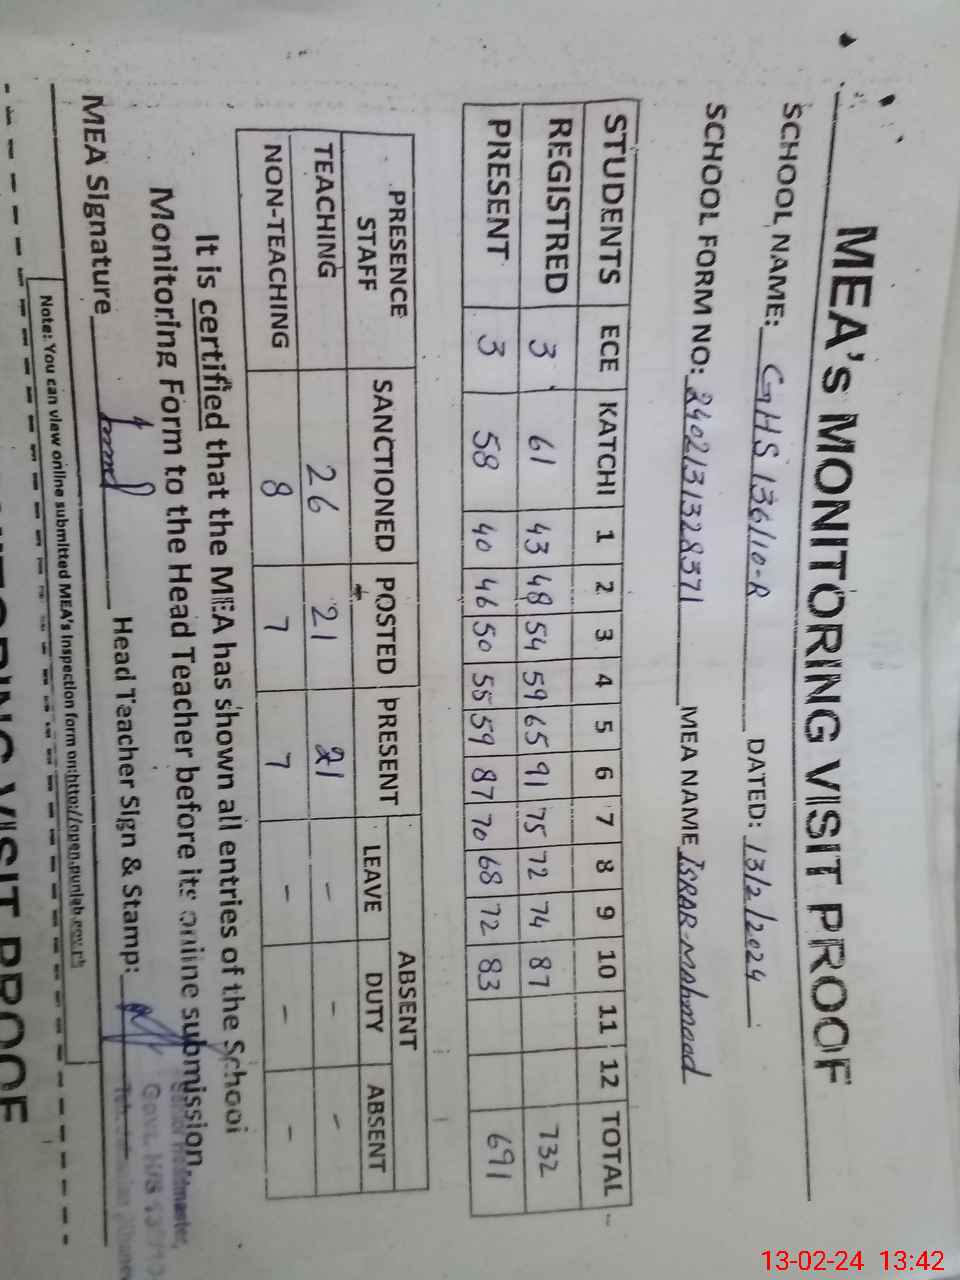 MEA's MONITORING VISIT PROOF
SCHOOL NAME: GHS 136/10-R DATED: 13/2/2024
SCHOOL FORM NO: 2402131328371 MEA NAME ISRAR Mahmood
STUDENTS ECE KATCHI 1 2 3 4 5 6 7 8 9 10 11 12 TOTAL
REGISTRED 3 61 43 48 54 59 65 91 75 72 74 87 732
PRESENT 3 58 40 46 50 55 59 87 70 68 72 83 691
PRESENCE STAFF SANCTIONED POSTED PRESENT ABSENT
LEAVE DUTY ABSENT
TEACHING 26 21 21 - - -
NON-TEACHING 8 7 7 - - -
It is certified that the MEA has shown all entries of the School
Monitoring Form to the Head Teacher before its online submission.
MEA Signature Head Teacher Sign & Stamp:
Note: You can view online submitted MEA's inspection form on:http://open.punjab.gov.pk
VISIT PROOF
13-02-24 13:42